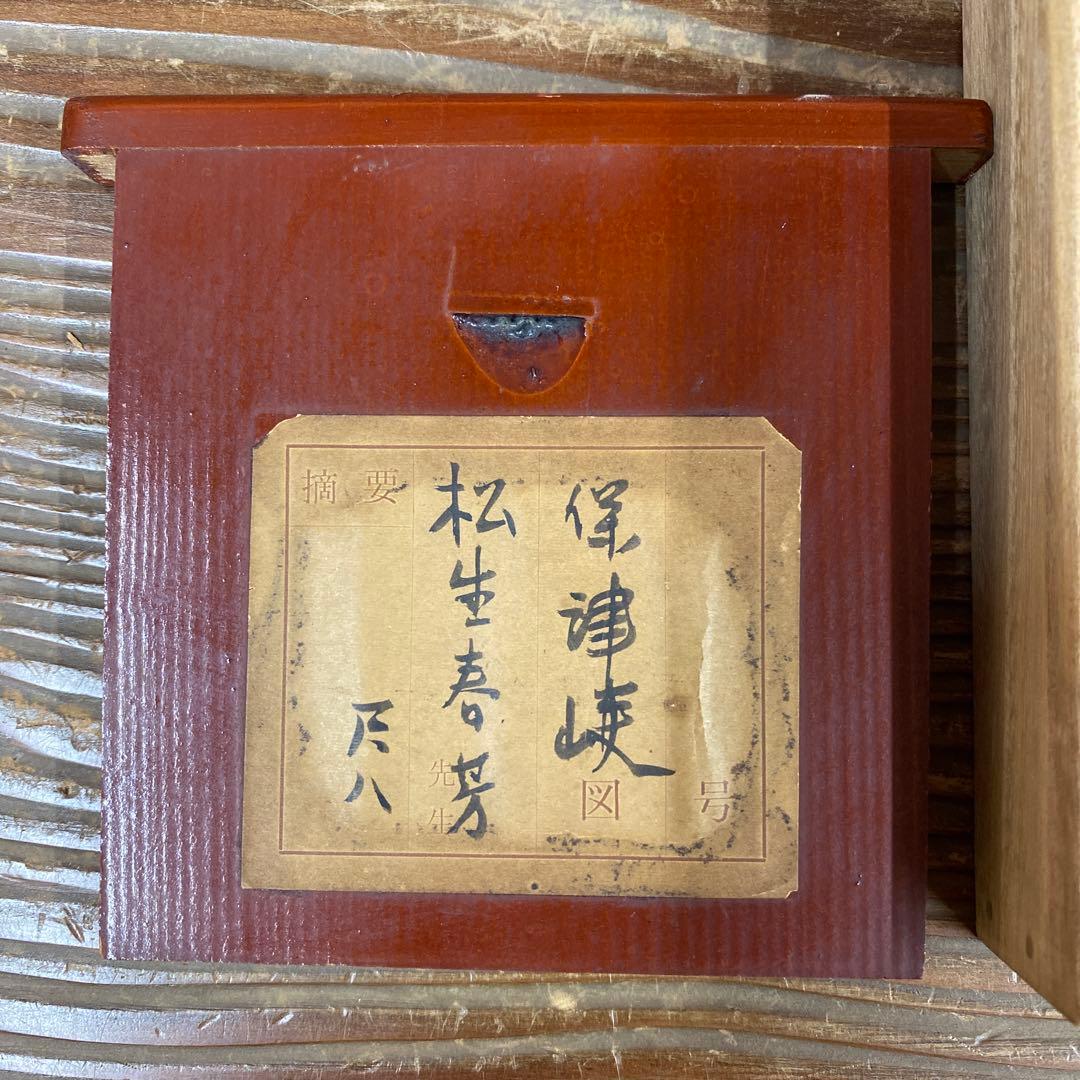 号
保津峡図
松生春芳先生
摘要
尺八